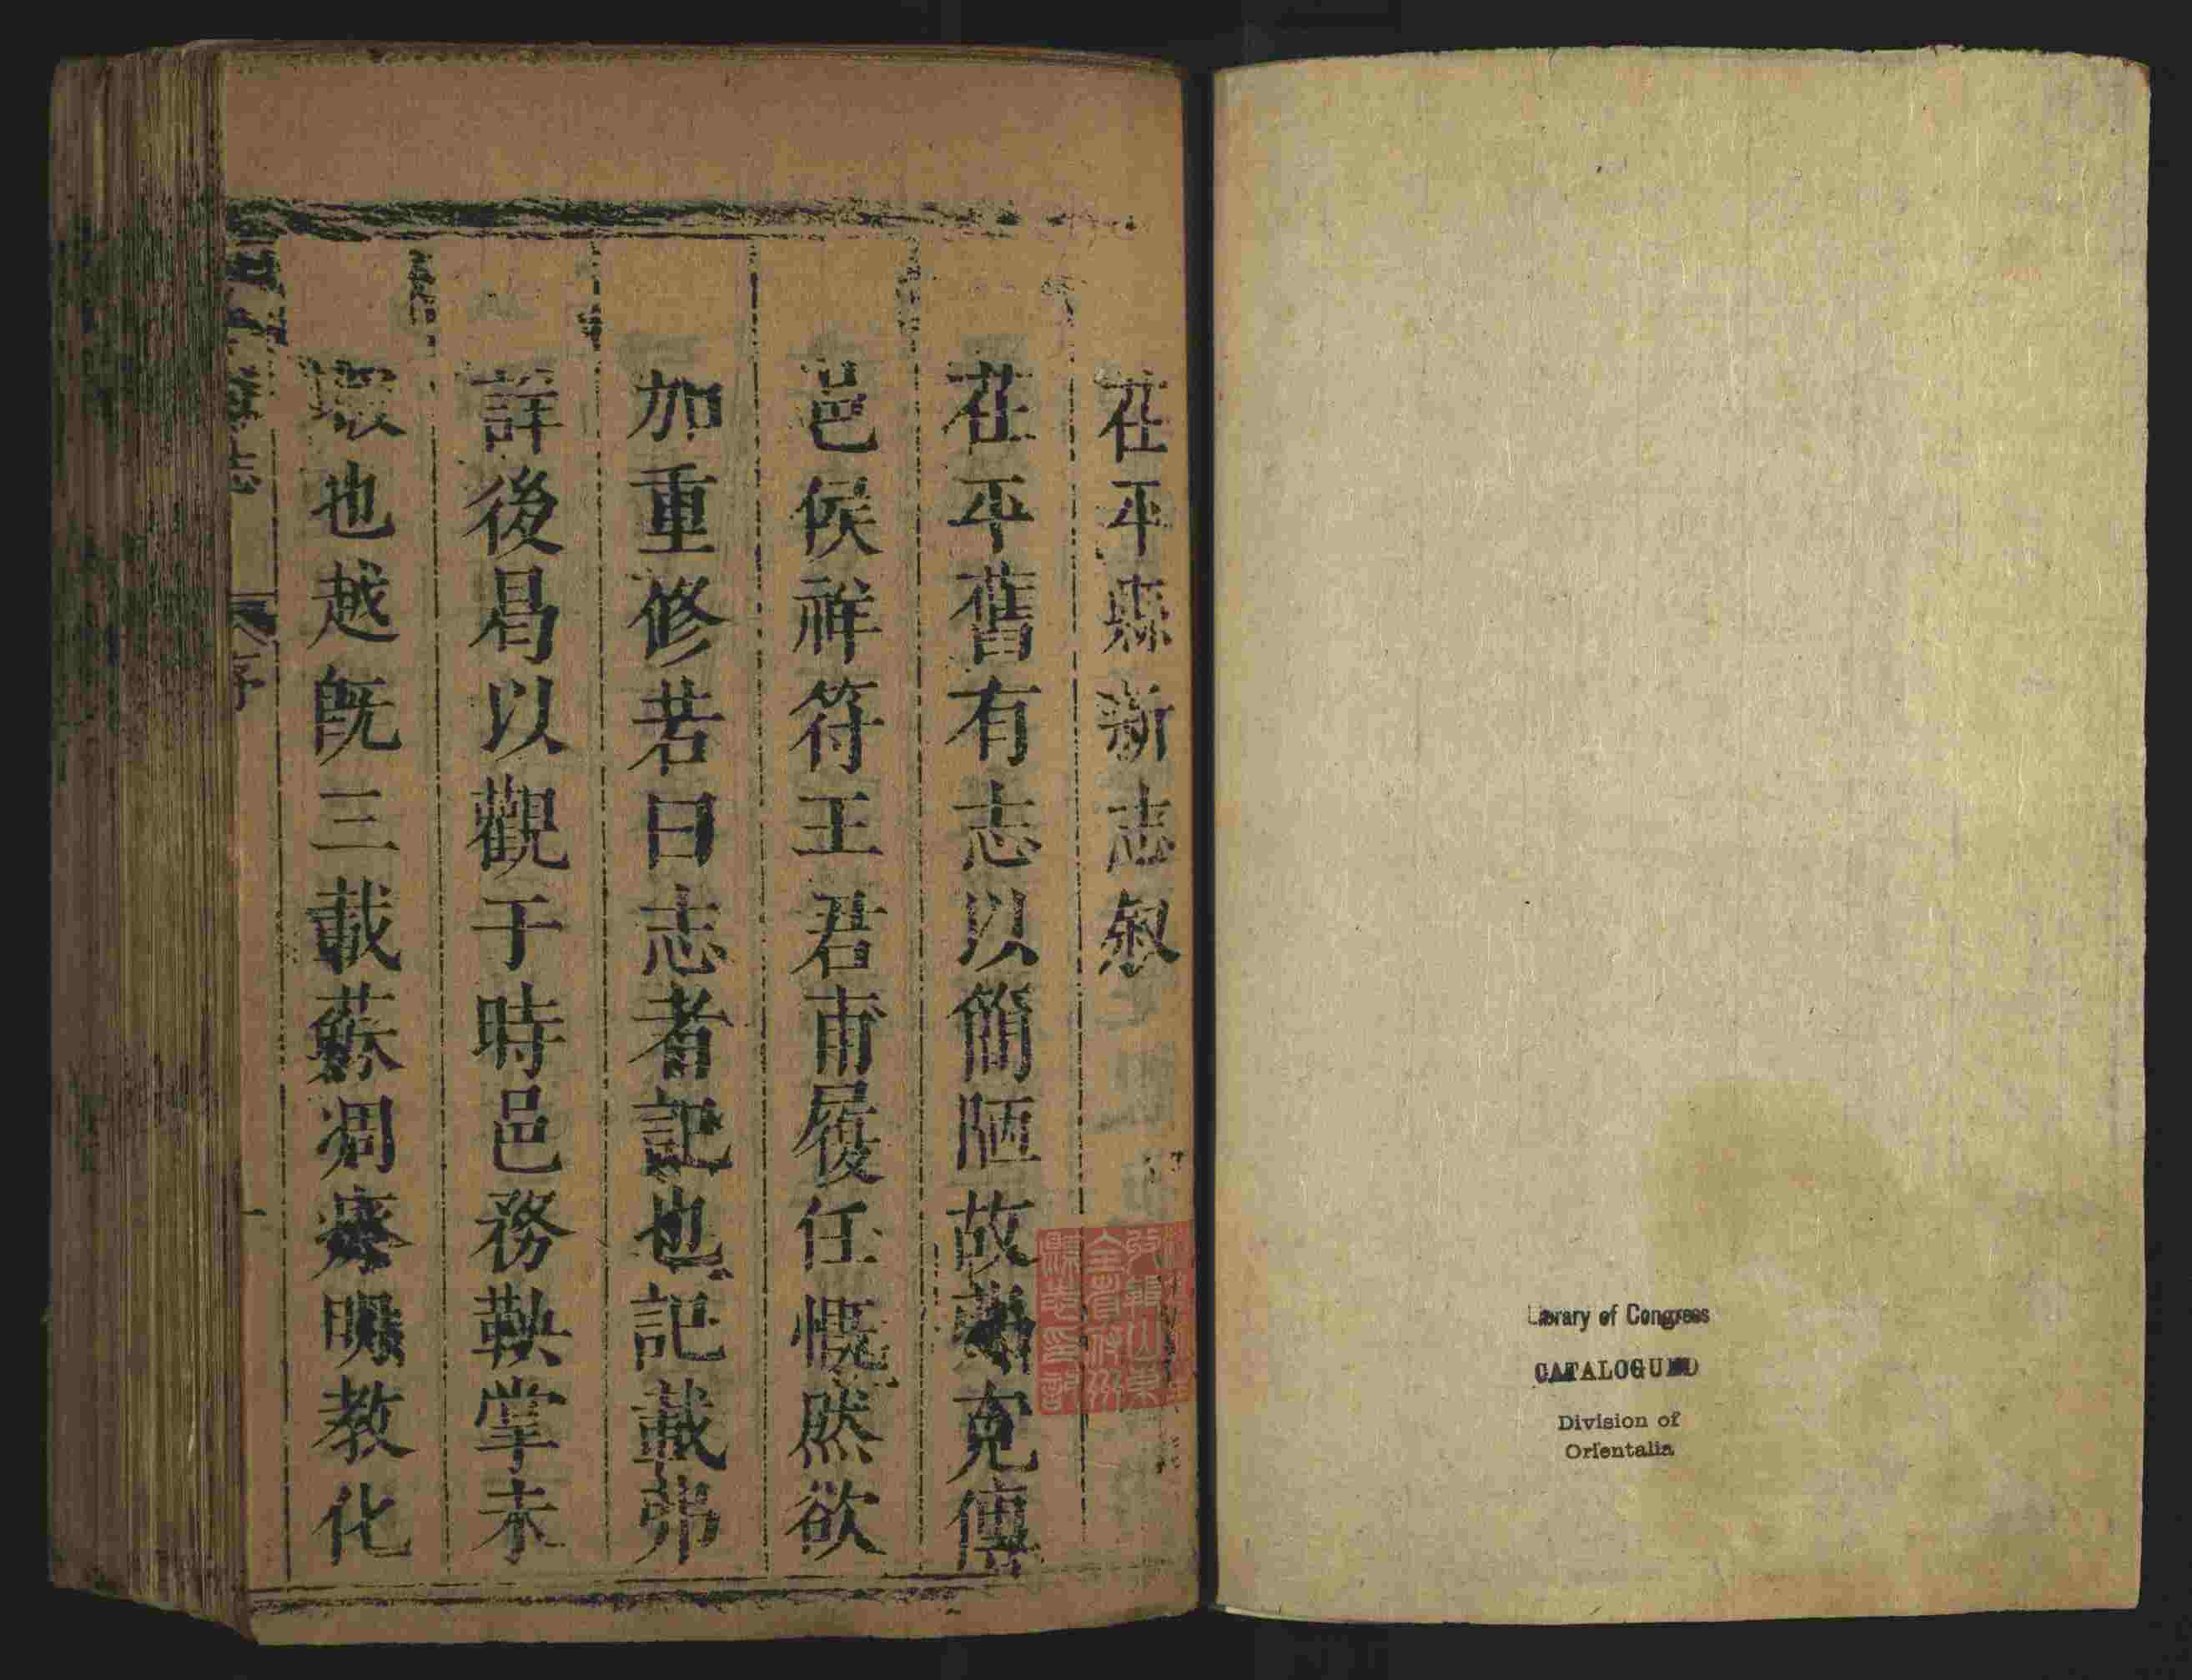 茌平縣新志叙
茌平舊有志以簡陋故尠克傳
邑侯祥符王君甫履任慨然欲
加重修若曰志者記也記載弗
詳後曷以觀于時邑務鞅掌未
遑也越旣三載蘇凋瘵暢教化
序
一
Library of Congress
CATALOGUED
Division of
Orientalia